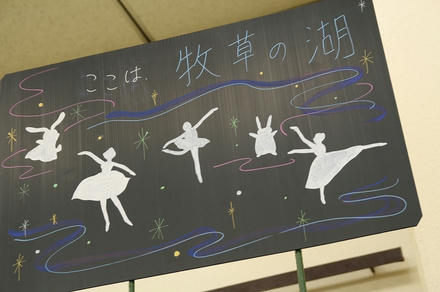 ここは、牧草の湖